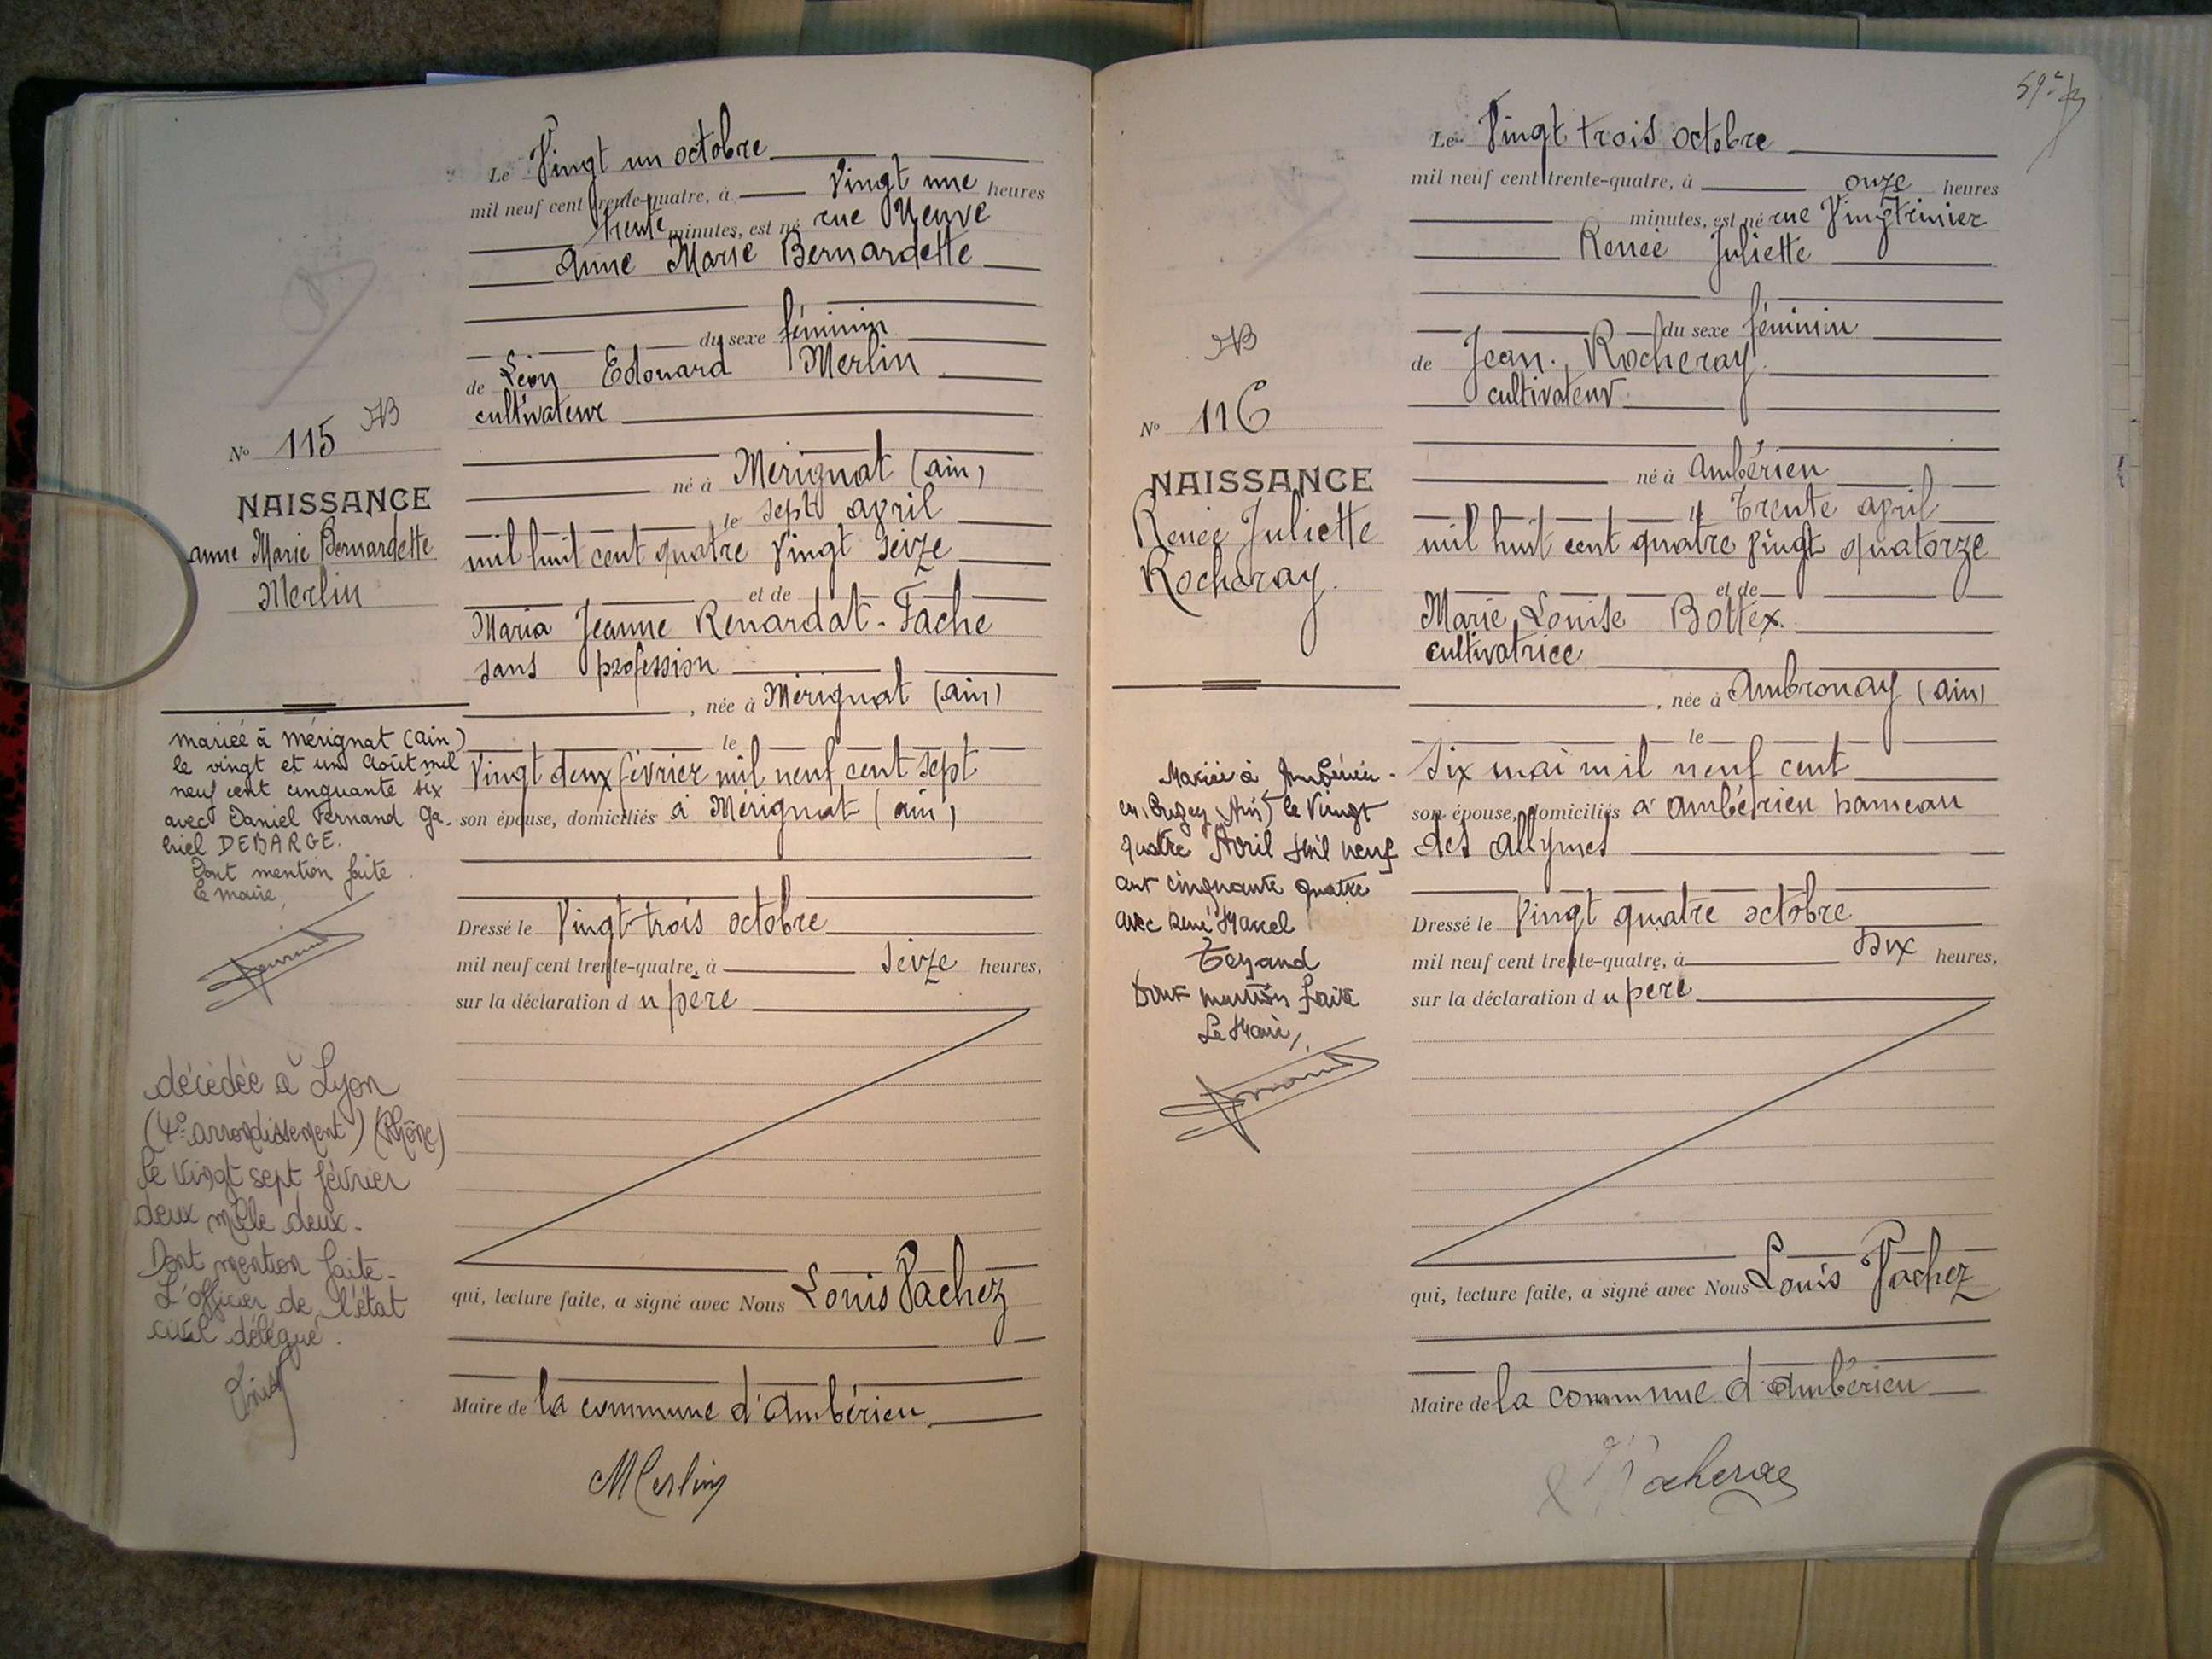 Le Vingt un octobre
mil neuf cent trente-quatre, à Vingt une heures
trente minutes, est né rue Neuve
Anne Marie Bernardette
du sexe féminin
de Léon Edouard Merlin
cultivateur
né à Mérignat (Ain)
le sept avril
mil huit cent quatre vingt seize
et de
Maria Jeanne Renardat-Fache
sans profession
, née à Mérignat (Ain)
le
vingt deux février mil neuf cent sept
son épouse, domiciliés à Mérignat (Ain)
Dressé le Vingt-trois octobre
mil neuf cent trente-quatre, à seize heures,
sur la déclaration du père
qui, lecture faite, a signé avec Nous Louis Pachez
Maire de la commune d'Ambérieu
Merlin
No 115
NAISSANCE
Anne Marie Bernardette
Merlin
mariée à Mérignat (Ain)
le vingt et un Août mil
neuf cent cinquante six
avec Daniel Fernand Ga-
briel DEBARGE.
Dont mention faite
Le maire,
décédée à Lyon
(4e arrondissement) (Rhône)
le vingt sept février
deux mille deux.
Dont mention faite.
L'officier de l'état
civil délégué.
59e
Le Vingt trois octobre
mil neuf cent trente-quatre, à onze heures
minutes, est né rue Vingtrinier
Renée Juliette
du sexe féminin
de Jean Rocheray
cultivateur
né à Ambérieu
le trente avril
mil huit cent quatre vingt quatorze
et de
Marie Louise Bottex.
cultivatrice
, née à Ambronay (Ain)
le
six mai mil neuf cent
son épouse, domiciliés à Ambérieu hameau
des Allymes
Dressé le Vingt quatre octobre
mil neuf cent trente-quatre, à heures,
sur la déclaration du père
qui, lecture faite, a signé avec Nous Louis Pachez
Maire de la commune d'Ambérieu
Rocheray
No 116
NAISSANCE
Renée Juliette
Rocheray
Mariée à Ambérieu-
en-Bugey (Ain) le Vingt
quatre Avril mil neuf
cent cinquante quatre
avec René Marcel
Dont mention faite
Le Maire,